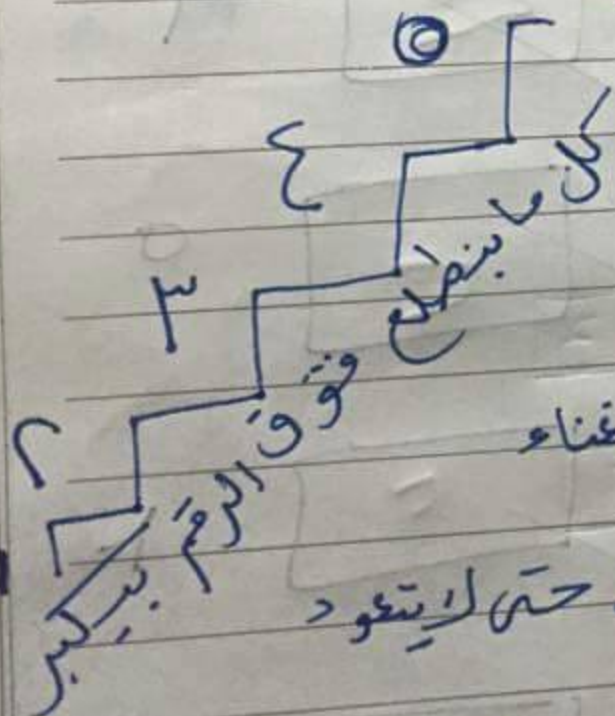 ٥
٤
٣
٢
كل ما بنطلع فوق الرقم بيكبر
غناء
حتى لا يتعود